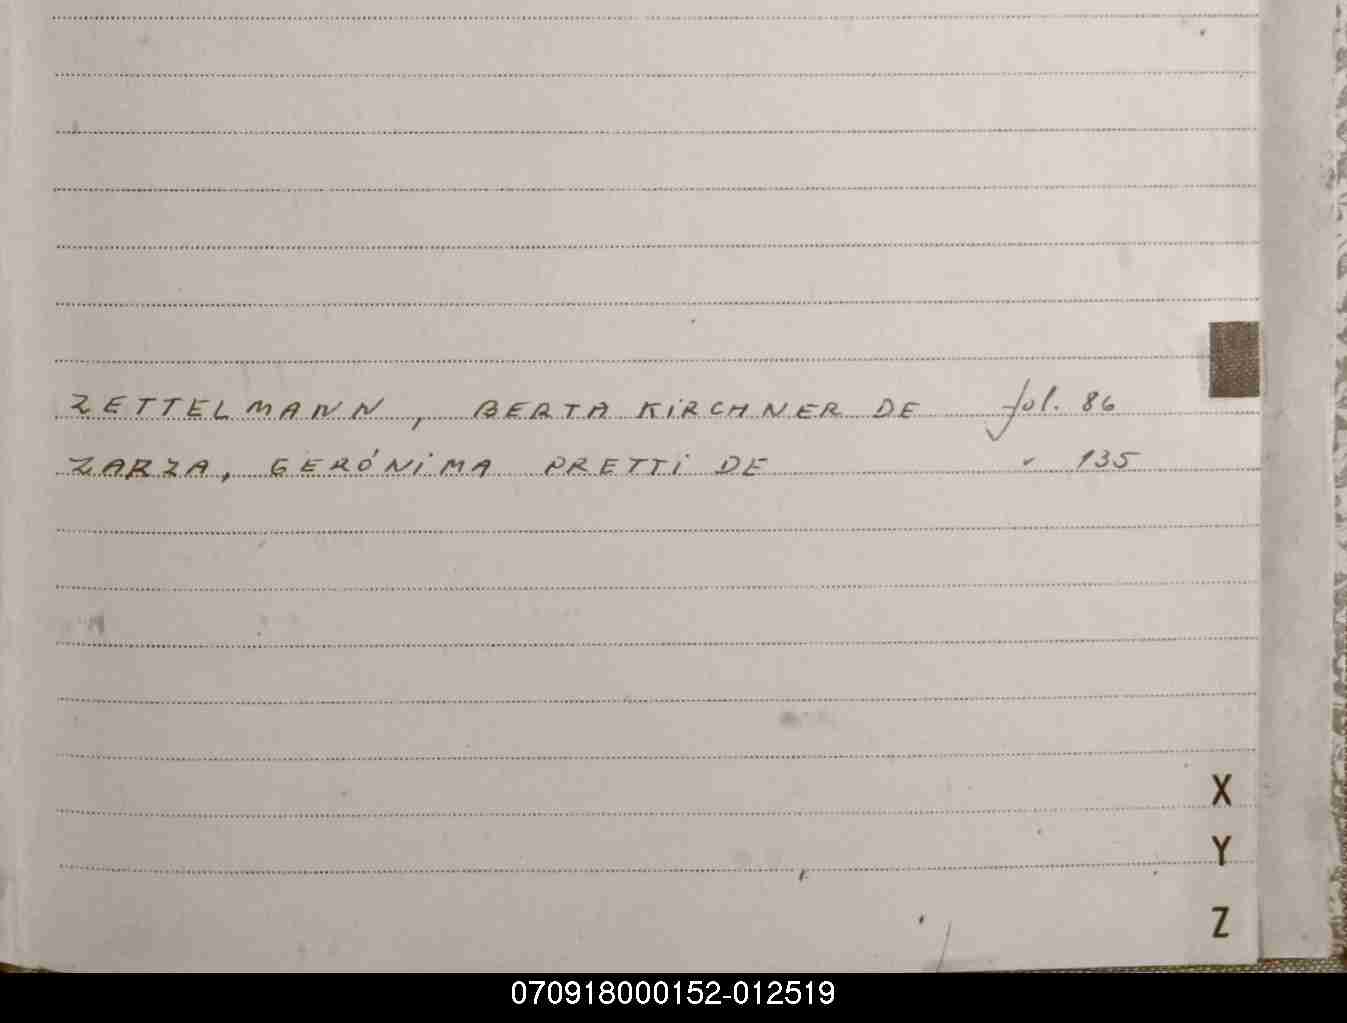 ZETTELMANN, BERTA KIRCHNER DE fol. 86
ZARZA, GERÓNIMA PRETTI DE " 135
X
Y
Z
070918000152-012519